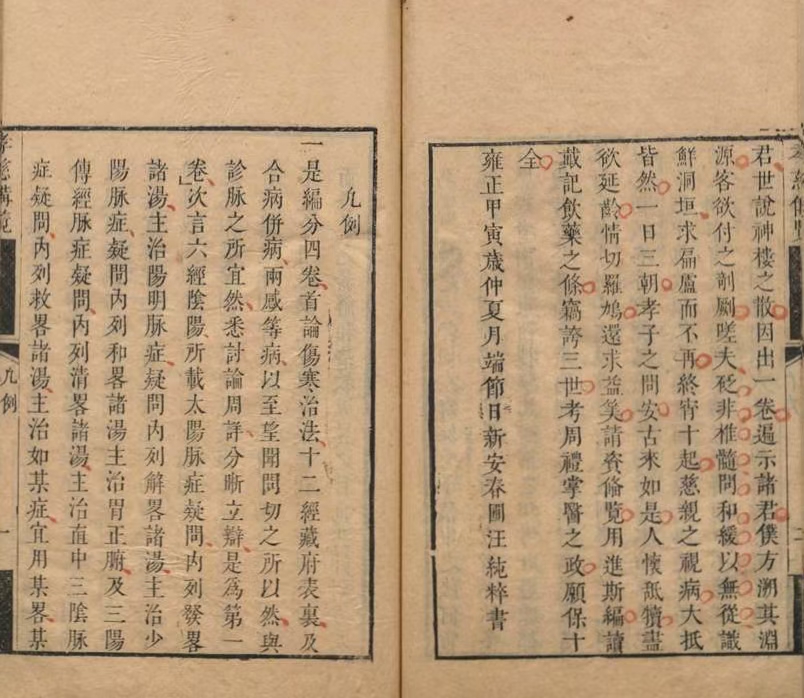 君世說神樓之散因出一卷遍示諸君僕方溯其淵
源客欲付之剞劂嗟夫砭非椎髓問和緩以無從識
鮮洞垣求扁盧而不再終宵十起慈親之視病大抵
皆然一日三朝孝子之問安古來如是人懷舐犢盡
欲延齡情切羅鳩還求益筭請資偹覽用進斯編讀
戴記飲藥之條竊誇三世考周禮掌醫之政願保十
全
雍正甲寅歲仲夏月端節日新安春圃汪純粹書
凡例
一是編分四卷首論傷寒治法十二經藏府表裏及
合病併病兩感等病以至望聞問切之所以然與
診脉之所宜然悉討論周詳分晰立辯是為第一
卷次言六經陰陽所載太陽脉症疑問内列發畧
諸湯主治陽明脉症疑問内列解畧諸湯主治少
陽脉症疑問内列和畧諸湯主治胃正腑及三陽
傳經脉症疑問内列清畧諸湯主治直中三陰脉
症疑問内列救畧諸湯主治如某症宜用某畧某
孝慈備覽
凡例
一